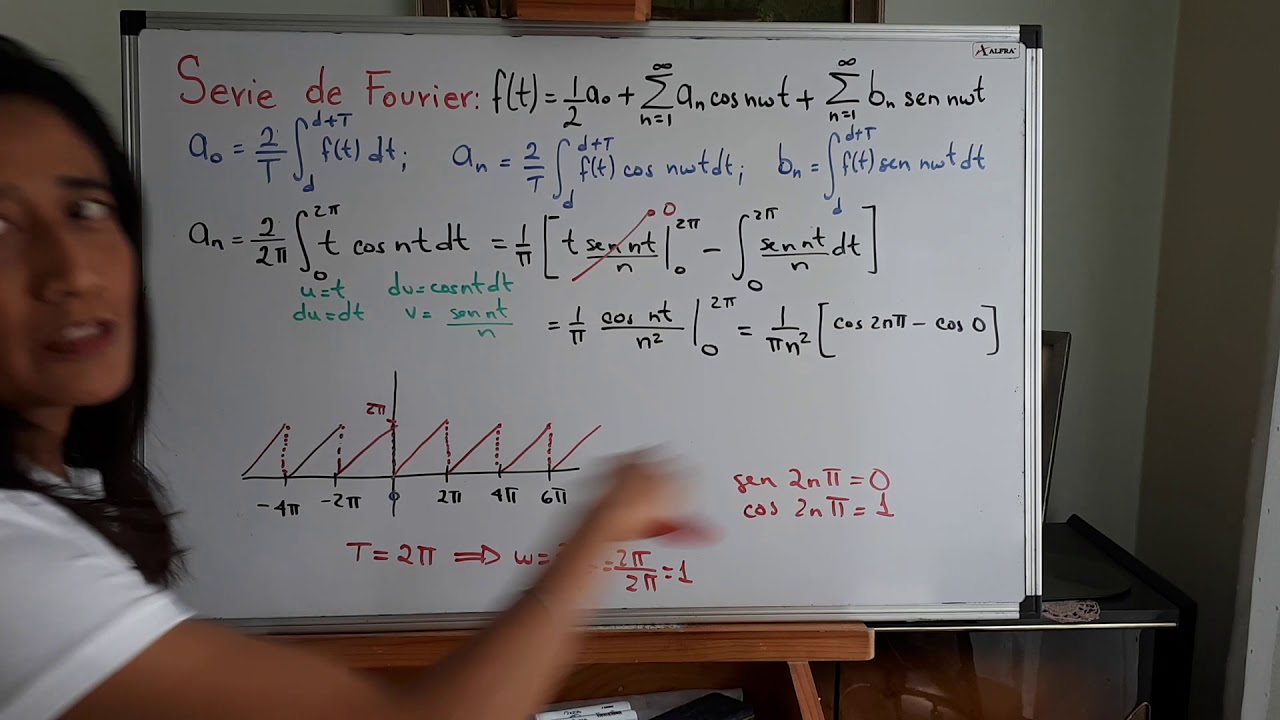 ALFRA
Serie de Fourier: f(t) = 1/2 a₀ + ∑_{n=1}^{∞} aₙ cos nωt + ∑_{n=1}^{∞} bₙ sen nωt
a₀ = 2/T ∫_d^{d+T} f(t) dt; aₙ = 2/T ∫_d^{d+T} f(t) cos nωt dt; bₙ = ∫_d^{d+T} f(t) sen nωt dt
aₙ = 2/2π ∫_0^{2π} t cos nt dt = 1/π [ t sen nt/n |_0^{2π} 0 − ∫_0^{2π} sen nt/n dt ]
u = t dv = cos nt dt
du = dt v = sen nt/n
= 1/π cos nt/n² |_0^{2π} = 1/πn² [cos 2nπ − cos 0]
2π
−4π −2π 0 2π 4π 6π
sen 2nπ = 0
cos 2nπ = 1
T = 2π ⟹ ω = = 2π/2π = 1